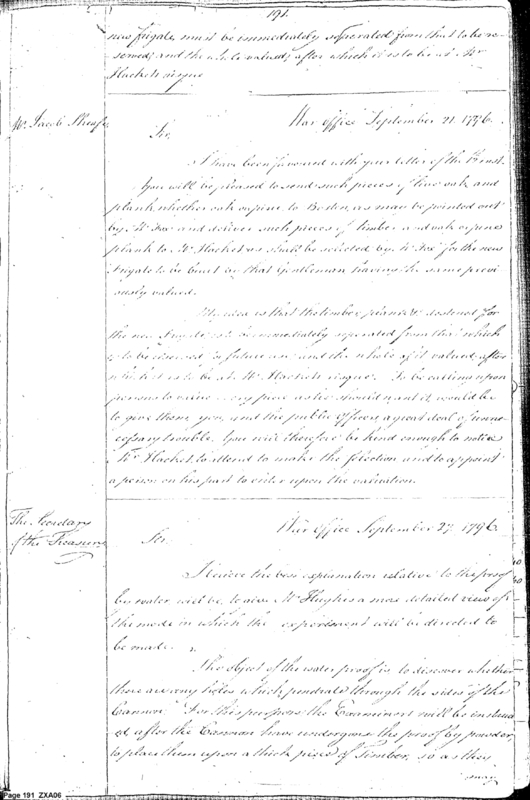 191.
new frigate must be immediately seperated from that to be re-
served; and the whole valued; after which it is to be at Mr
Hackets risque
Mr. Jacob Sheafe
War office September 21. 1796.
Sir,
I have been favoured with your letter of the inst.
You will be pleased to send such pieces of live oak and
plank whether oak or pine to Boston, as may be pointed out
by Mr Fox and deliver such pieces of timber and oak or pine
plank to Mr Hacket as shall be selected by Mr Fox for the new
frigate to be built by that Gentleman having the same previ
ously valued.
My idea is that the timber, plank &c destined for
the new frigate must be immediately seperated from that which
is to be reserved for future use and the whole of it valued, after
which it is to be at Mr Hackets risque. To be calling upon
persons to value every piece as he should want it, would be
to give them, you, and the public officers a great deal of unne-
cessary trouble. You will therefore be kind enough to notice
Mr Hacket, to attend to make the selection and to appoint
a person on his part to enter upon the valuation.
The Secretary
of the Treasury
War office September 27. 1796.
Sir
I believe the best explanation relative to the proof
by water, will be, to give Mr Hughes a more detailed view of
the mode in which the experiment will be directed to
be made.
The object of the water proof is to discover whether
there are any holes which penetrate through the sides of the
Cannon. For this purpose the Examiners will be instruct
ed after the Cannon have undergone the proof by powder,
to place them upon a thick piece of Timber, so as they
may
Page 191 ZXA06